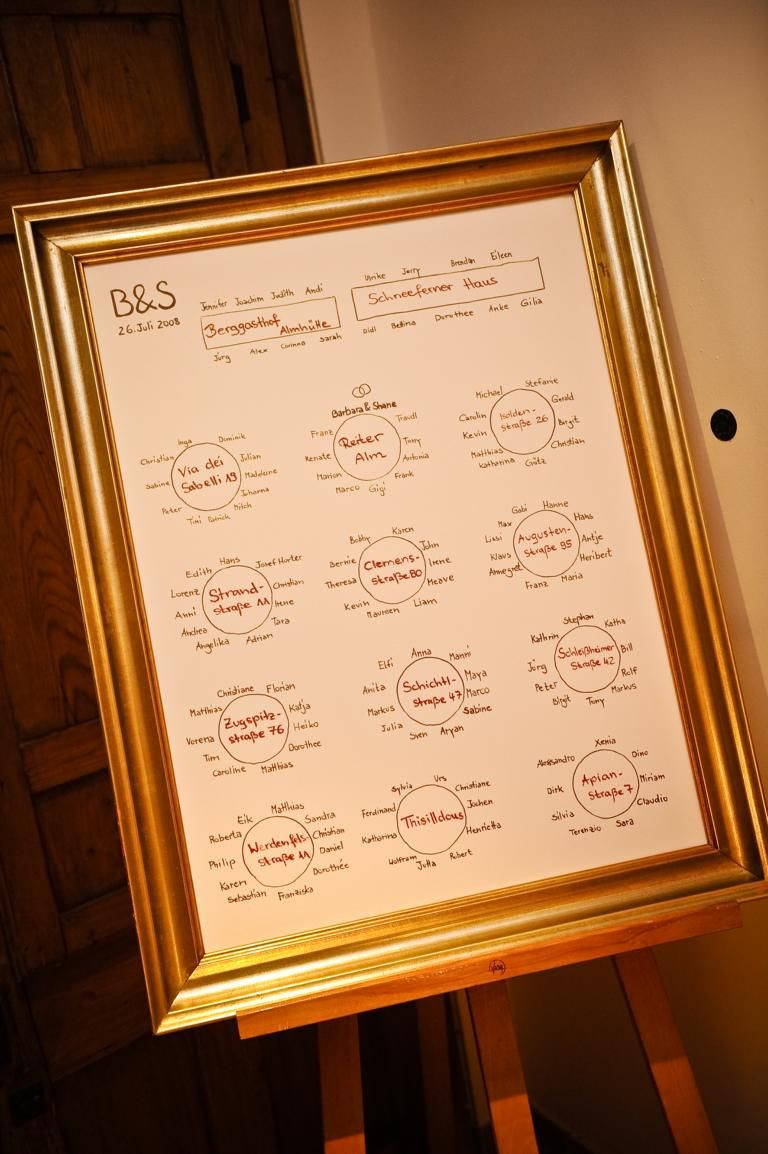 B&S
26. Juli 2008
Jennifer Joachim Judith Andi
Berggasthof
Almhütte
Jürg Alex Corinna Sarah
Ulrike Jerry Brendan Eileen
Schneeferner Haus
Didi Bettina Dorothee Anke Gilia
Inga Dominik
Christian Julian
Via dei
Sabelli 19
Sabine Madeleine
Johanna
Peter Mitch
Timi Patrick
Barbara & Shane
Franz Traudl
Reiter
Alm
Renate Tony
Antonia
Marion Frank
Marco Gigi
Michael Stefanie
Carolin Gerald
Isolden-
straße 26
Kevin Birgit
Matthias Christian
Katharina Götz
Edith Hans Josef Horter
Lorenz Christian
Strand-
straße 11
Anni Irene
Andrea Tara
Angelika Adrian
Bobby Karen
Bernie John
Clemens-
straße 80
Theresa Irene
Meave
Kevin Liam
Maureen
Gabi Hanne
Max Hans
Lissi Antje
Augusten-
straße 85
Klaus Heribert
Annegret
Franz Maria
Christiane Florian
Matthias Katja
Zugspitz-
straße 76
Verena Heiko
Tim Dorothee
Caroline Matthias
Elfi Anna Manni
Anita Maya
Schichtl-
straße 47
Markus Marco
Julia Sabine
Sven Aryan
Stephan Katha
Kathrin Bill
Schleißheimer
Straße 42
Jörg Rolf
Peter Markus
Birgit Tony
Eik Matthias Sandra
Roberta Christian
Werdenfels-
straße 11
Philip Daniel
Karen Dorothée
Sebastian Franziska
Sylvia Urs Christiane
Ferdinand Jochen
Thisilldous
Katharina Henrietta
Wolfram Jutta Robert
Xenia
Alessandro Dino
Apian-
straße 7
Dirk Miriam
Silvia Claudio
Terenzio Sara